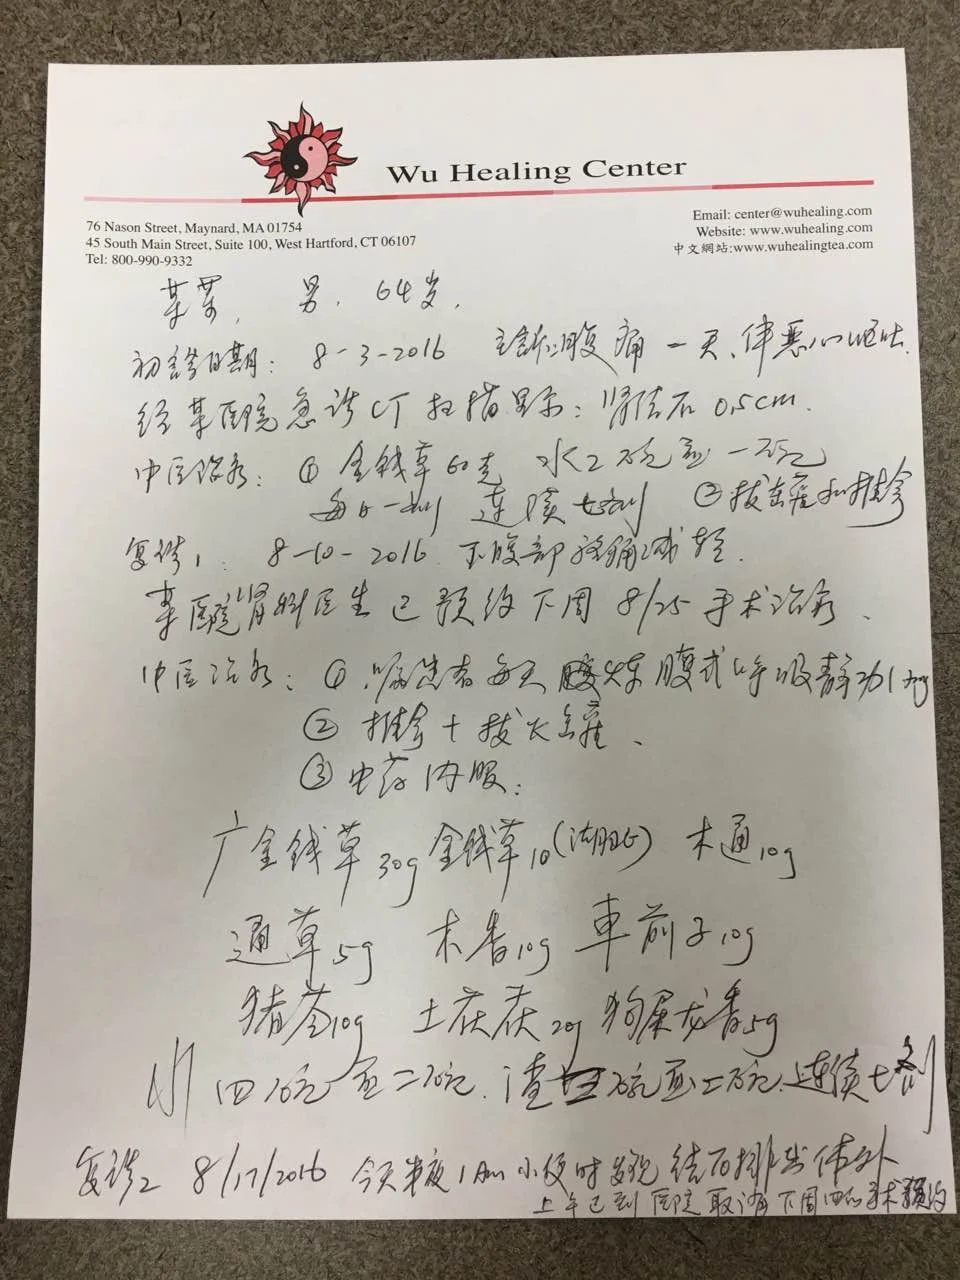 Wu Healing Center
76 Nason Street, Maynard, MA 01754
45 South Main Street, Suite 100, West Hartford, CT 06107
Tel: 800-990-9332
Email: center@wuhealing.com
Website: www.wuhealing.com
中文網站:www.wuhealingtea.com
某某, 男. 64岁.
初诊日期: 8-3-2016 主诉:腹痛一天、伴恶心呕吐.
经某医院急诊CT扫描显示:肾结石0.5cm.
中医治疗: ① 金钱草60克 水2碗至一碗
每日一剂 连续七剂 ②拔罐和推拿
复诊1: 8-10-2016. 下腹部疼痛减轻.
某医院肾科医生已预约下周8/25手术治疗.
中医治疗: ①.嘱患者每天 腹式呼吸静功1
② 推拿+拔火罐、
③ 中药内服:
广金钱草30g 金钱草10 木通10g
通草5g 木香10g 車前子10g
猪苓10g 土茯苓20g 狗屎龙香5g
四碗至二碗. 渣 碗至二碗. 连续七剂
复诊2 8/17/2016 今天半夜1Am小便时发现结石排出体外
上午已到医院取消下周四的手术预约